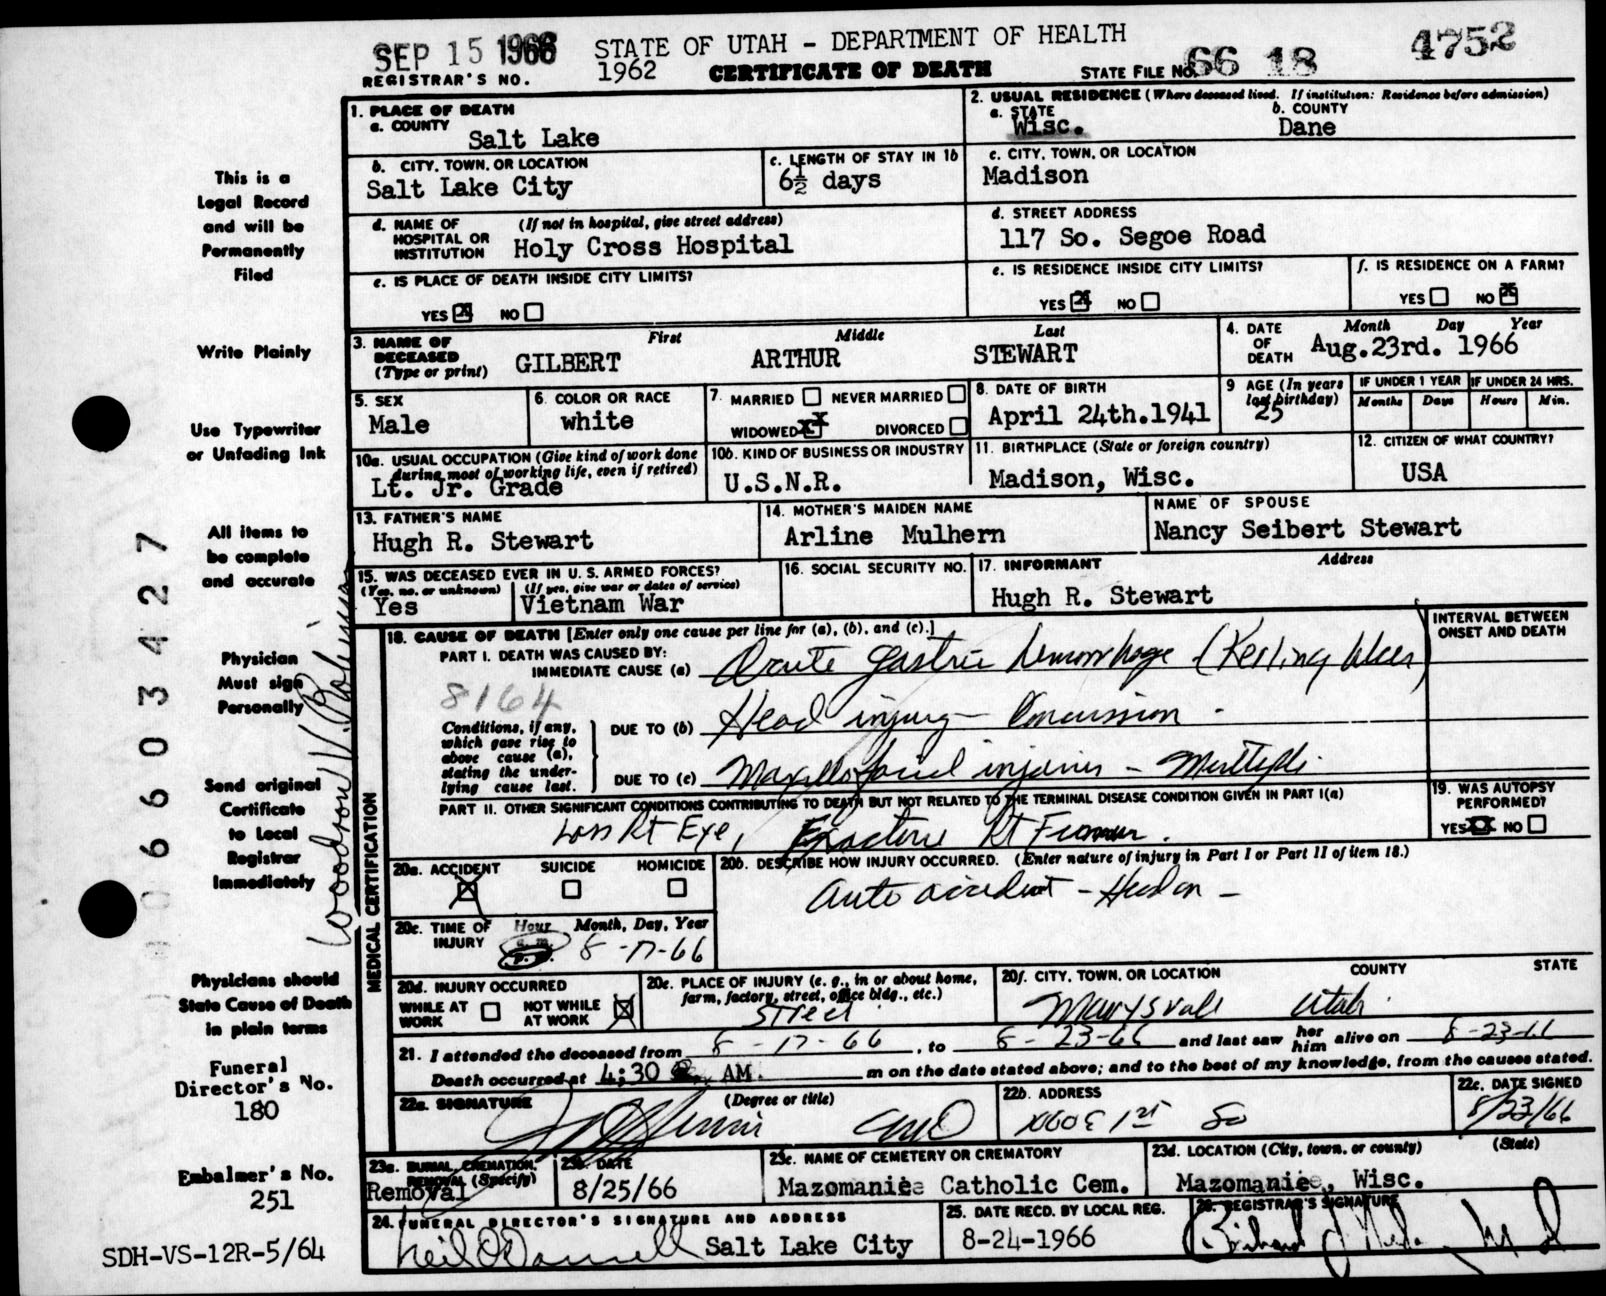 SEP 15 1966 STATE OF UTAH - DEPARTMENT OF HEALTH 4752
REGISTRAR'S NO. 1962 CERTIFICATE OF DEATH STATE FILE NO. 66 18
1. PLACE OF DEATH
a. COUNTY
Salt Lake
2. USUAL RESIDENCE (Where deceased lived. If institution: Residence before admission)
a. STATE b. COUNTY
Wisc. Dane
b. CITY, TOWN, OR LOCATION
Salt Lake City
c. LENGTH OF STAY IN 1b
6½ days
c. CITY, TOWN, OR LOCATION
Madison
d. NAME OF HOSPITAL OR INSTITUTION (If not in hospital, give street address)
Holy Cross Hospital
d. STREET ADDRESS
117 So. Segoe Road
e. IS PLACE OF DEATH INSIDE CITY LIMITS?
YES X NO
e. IS RESIDENCE INSIDE CITY LIMITS?
YES X NO
f. IS RESIDENCE ON A FARM?
YES NO X
3. NAME OF DECEASED (Type or print) First Middle Last
GILBERT ARTHUR STEWART
4. DATE OF DEATH Month Day Year
Aug.23rd. 1966
5. SEX
Male
6. COLOR OR RACE
white
7. MARRIED NEVER MARRIED
WIDOWED X DIVORCED
8. DATE OF BIRTH
April 24th.1941
9 AGE (In years last birthday)
25
IF UNDER 1 YEAR
Months Days
IF UNDER 24 HRS.
Hours Min.
10a. USUAL OCCUPATION (Give kind of work done during most of working life, even if retired)
Lt. Jr. Grade
10b. KIND OF BUSINESS OR INDUSTRY
U.S.N.R.
11. BIRTHPLACE (State or foreign country)
Madison, Wisc.
12. CITIZEN OF WHAT COUNTRY?
USA
13. FATHER'S NAME
Hugh R. Stewart
14. MOTHER'S MAIDEN NAME
Arline Mulhern
NAME OF SPOUSE
Nancy Seibert Stewart
15. WAS DECEASED EVER IN U. S. ARMED FORCES?
(Yes, no, or unknown) (If yes, give war or dates of service)
Yes Vietnam War
16. SOCIAL SECURITY NO.
17. INFORMANT Address
Hugh R. Stewart
18. CAUSE OF DEATH [Enter only one cause per line for (a), (b), and (c).]
INTERVAL BETWEEN ONSET AND DEATH
PART I. DEATH WAS CAUSED BY:
IMMEDIATE CAUSE (a) Acute gastric hemorrhage
8164
Conditions, if any, which gave rise to above cause (a), stating the underlying cause last.
DUE TO (b) Head injury - Concussion -
DUE TO (c) Maxillofacial injuries - Multiple.
PART II. OTHER SIGNIFICANT CONDITIONS CONTRIBUTING TO DEATH BUT NOT RELATED TO THE TERMINAL DISEASE CONDITION GIVEN IN PART I(a)
Loss Rt Eye, Fracture Rt Femur.
19. WAS AUTOPSY PERFORMED?
YES X NO
20a. ACCIDENT SUICIDE HOMICIDE
X
20b. DESCRIBE HOW INJURY OCCURRED. (Enter nature of injury in Part I or Part II of item 18.)
auto accident - Head on -
20c. TIME OF INJURY Hour Month, Day, Year
a.m. p.m. 8-17-66
20d. INJURY OCCURRED
WHILE AT WORK NOT WHILE AT WORK X
20e. PLACE OF INJURY (e. g., in or about home, farm, factory, street, office bldg., etc.)
Street
20f. CITY, TOWN, OR LOCATION COUNTY STATE
Marysvale Utah.
21. I attended the deceased from 8-17-66, to 8-23-66 and last saw her him alive on 8-23-66
Death occurred at 4:30 AM. m on the date stated above; and to the best of my knowledge, from the causes stated.
22a. SIGNATURE (Degree or title)
MD
22b. ADDRESS
22c. DATE SIGNED
8/23/66
23a. BURIAL, CREMATION, REMOVAL (Specify)
Removal
23b. DATE
8/25/66
23c. NAME OF CEMETERY OR CREMATORY
Mazomanie Catholic Cem.
23d. LOCATION (City, town, or county) (State)
Mazomanie, Wisc.
24. FUNERAL DIRECTOR'S SIGNATURE AND ADDRESS
Neil O'Donnell Salt Lake City
25. DATE RECD. BY LOCAL REG.
8-24-1966
26. REGISTRAR'S SIGNATURE
MEDICAL CERTIFICATION
This is a
Legal Record
and will be
Permanently
Filed
Write Plainly
Use Typewriter
or Unfading Ink
All items to
be complete
and accurate
Physician
Must sign
Personally
Send original
Certificate
to Local
Registrar
Immediately
Physicians should
State Cause of Death
in plain terms
Funeral
Director's No.
180
Embalmer's No.
251
SDH-VS-12R-5/64
0 6 6 0 3 4 2 7
Woodrow V. Robinson